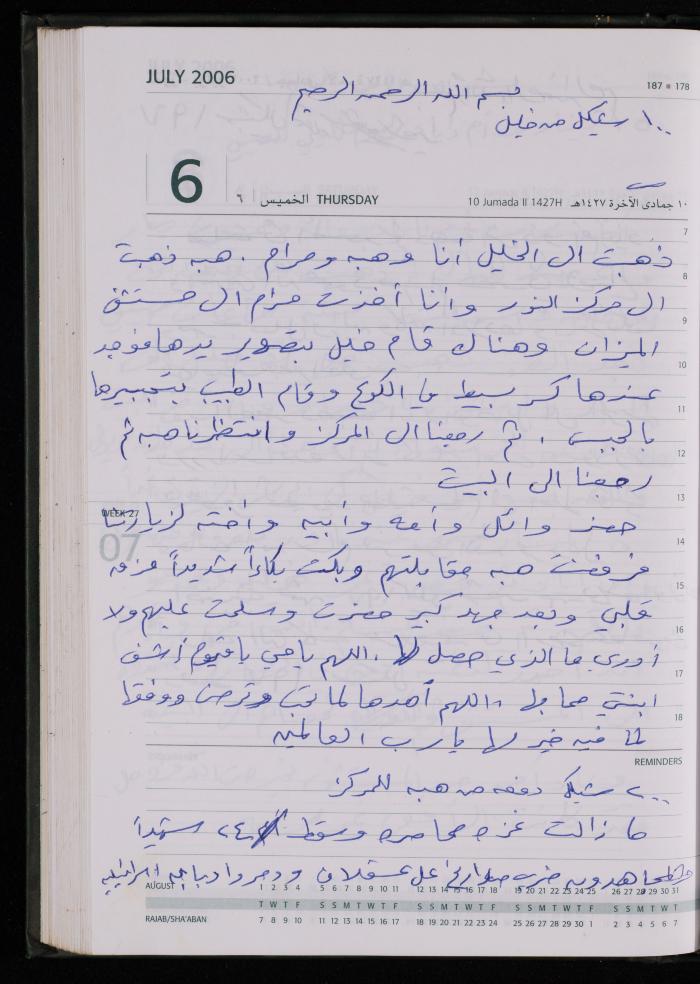 JULY 2006
187 • 178
بسم الله الرحمن الرحيم
١٠٠ شيكل من خليل
6 ٦ الخميس THURSDAY
10 Jumada II 1427H ١٠ جمادى الآخرة ١٤٢٧هـ
7
ذهبت الى الخليل أنا وهبه ومرام . هبه ذهبت
8
الى مركز النور وأنا أخذت مرام الى مستشفى
9
الميزان وهناك قام خليل بتصوير يدها فوجد
10
عندها كسر بسيط في الكوع وقام الطبيب بتجبيرها
11
بالجبس . ثم رجعنا الى المركز وانتظرنا هبه ثم
12
رجعنا الى البيت
13
WEEK 27
07
حضر وائل وأمه وأبيه وأخته لزيارتنا
14
فرفضت هبه مقابلتهم وبكت بكاءاً شديداً مزق
15
قلبي وبعد جهد كبير حضرت وسلمت عليهم ولا
16
أدري ما الذي حصل لها . اللهم ياحي ياقيوم أشف
17
ابنتي مما بها ، اللهم أهدها لما تحب وترضى ووفقها
18
لما فيه خير لها يارب العالمين
REMINDERS
٢٠٠ شيكل دفعه من هبه للمركز
ما زالت غزه محاصره وسقط ٢٤ شهيداً
ضرب صواريخ على عسقلان ودمروا دبابه اسرائيليه
AUGUST 1 2 3 4 5 6 7 8 9 10 11 12 13 14 15 16 17 18 19 20 21 22 23 24 25 26 27 28 29 30 31
T W T F S S M T W T F S S M T W T F S S M T W T F S S M T W T
RAJAB/SHA'ABAN 7 8 9 10 11 12 13 14 15 16 17 18 19 20 21 22 23 24 25 26 27 28 29 30 1 2 3 4 5 6 7